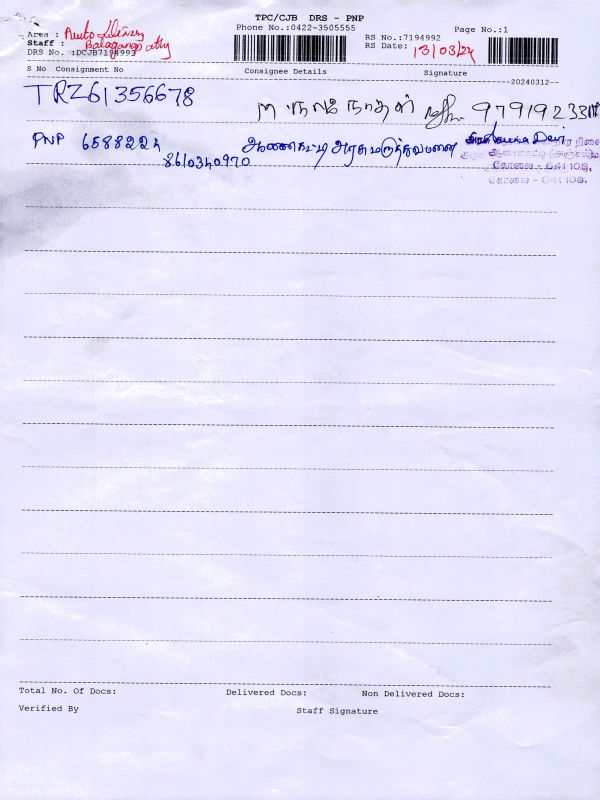 TPC/CJB DRS - PNP
Phone No.:0422-3505555 Page No.:1
Area : Auto Delivery
Staff : Balagangathry
DRS No. :DCJB7194993
RS No.:7194992
RS Date: 13/03/24
S No Consignment No Consignee Details Signature
20240312
TRZ61356678
9791923311
PNP 6588224 ஆனைகட்டி அரசு மருத்துவமனை Devi
8610340970
கோவை - 641 108.
கோவை - 641 108.
Total No. Of Docs: Delivered Docs: Non Delivered Docs:
Verified By Staff Signature